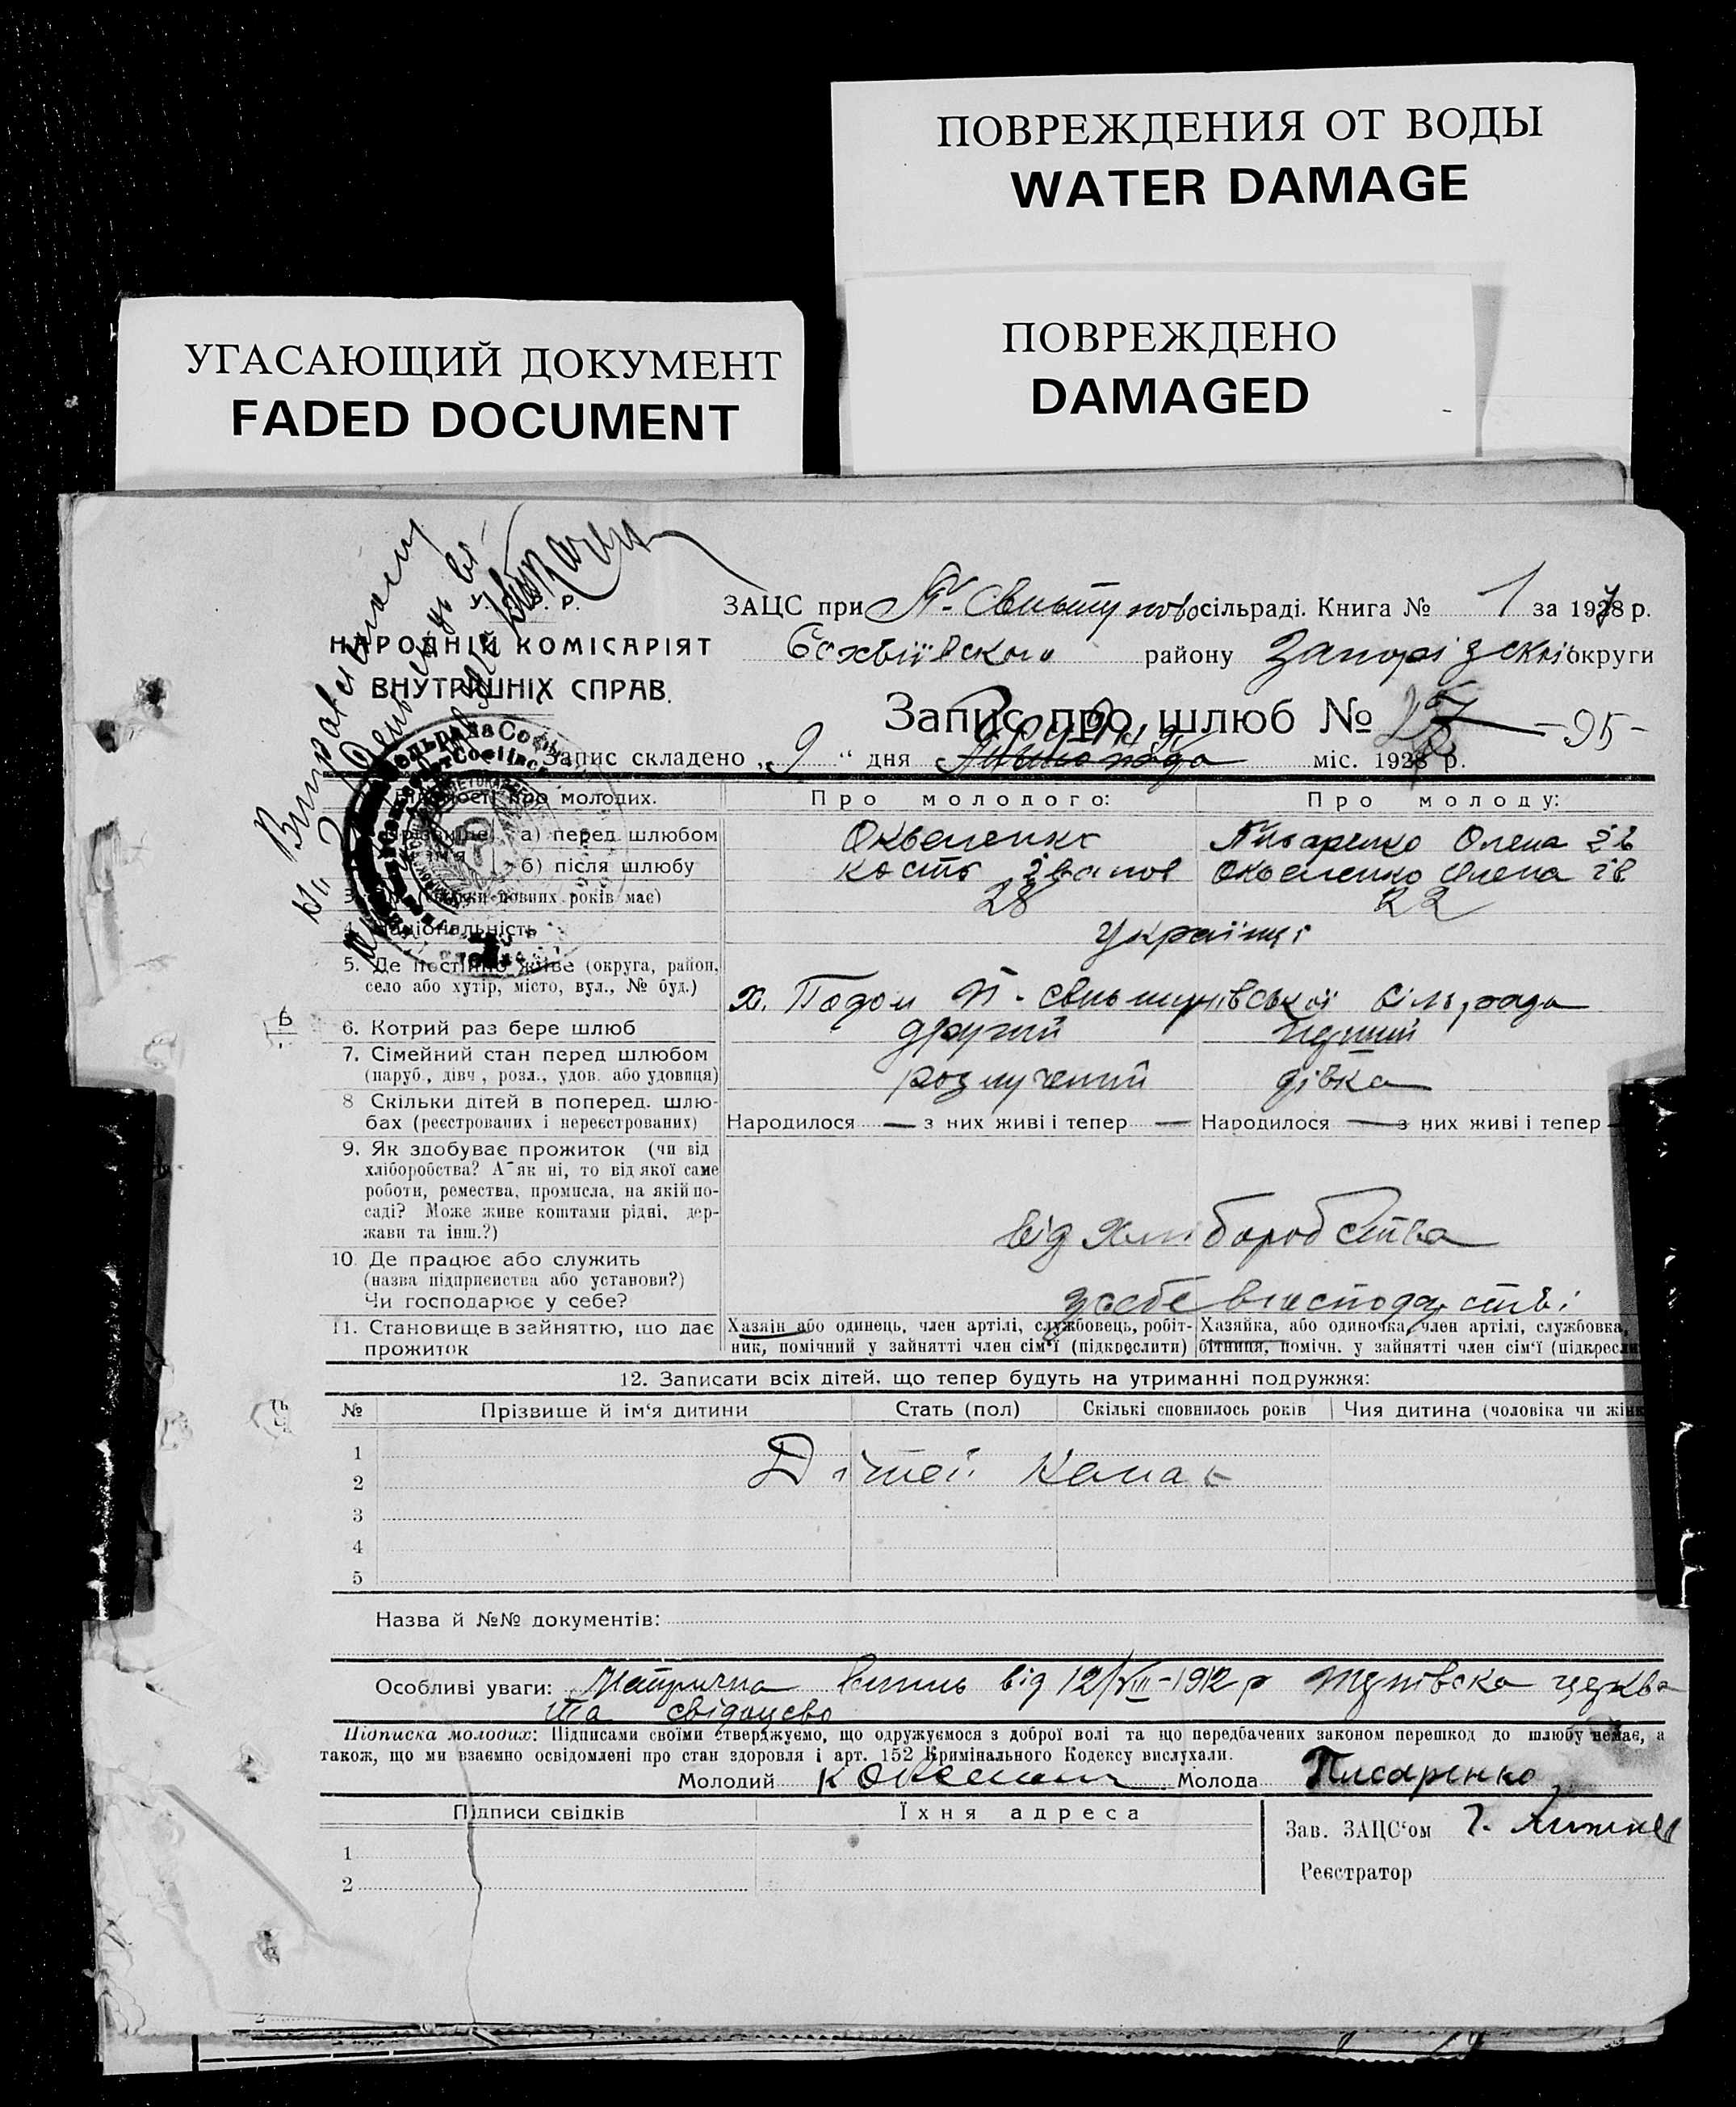 ПОВРЕЖДЕНИЯ ОТ ВОДЫ
WATER DAMAGE
ПОВРЕЖДЕНО
DAMAGED
УГАСАЮЩИЙ ДОКУМЕНТ
FADED DOCUMENT
У. С. Р. Р.
НАРОДНІЙ КОМІСАРІЯТ
ВНУТРІШНІХ СПРАВ.
ЗАЦС при сільраді. Книга № 1 за 1927 р.
району округи
Запис про шлюб № -95-
Запис складено „9“ дня міс. 192 р.
Відомості про молодих.
Про молодого:
Про молоду:
а) перед шлюбом
Писаренко Олена Ів
б) після шлюбу
Кость Іванов
Олена Ів
повних років має) 28 22
4. Національність українці
5. Де постійно живе (округа, район,
село або хутір, місто, вул., № буд.)
х. Подол
6. Котрий раз бере шлюб другий перший
7. Сімейний стан перед шлюбом
(паруб., дівч., розл., удов. або удовиця)
розлучений дівка
8 Скільки дітей в поперед. шлю-
бах (реєстрованих і нереєстрованих)
Народилося — з них живі і тепер — Народилося — з них живі і тепер —
9. Як здобуває прожиток (чи від
хліборобства? А як ні, то від якої саме
роботи, ремества, промисла, на якій по-
саді? Може живе коштами рідні, дер-
жави та інш.?)
від хліборобства
10. Де працює або служить
(назва підприємства або установи?)
Чи господарює у себе?
у себе в господарстві
11. Становище в зайняттю, що дає
прожиток
Хазяїн або одинець, член артілі, службовець, робіт-
ник, помічний у зайнятті член сім'ї (підкреслити)
Хазяйка, або одиночка, член артілі, службовка,
бітниця, помічн. у зайнятті член сім'ї (підкресл
12. Записати всіх дітей, що тепер будуть на утриманні подружжя:
№ Прізвище й ім'я дитини Стать (пол) Скількі сповнилось років Чия дитина (чоловіка чи жінк
1
2 Дітей немає
3
4
5
Назва й №№ документів:
Особливі уваги: Метрична від 12/VIII-1912 р церква
та свідоцво
Підписка молодих: Підписами своїми стверджуємо, що одружуємося з доброї волі та що передбачених законом перешкод до шлюбу немає, а
також, що ми взаємно освідомлені про стан здоровля і арт. 152 Кримінального Кодексу вислухали.
Молодий Молода Писаренко
Підписи свідків
Їхня адреса
Зав. ЗАЦС'ом
1
Реєстратор
2